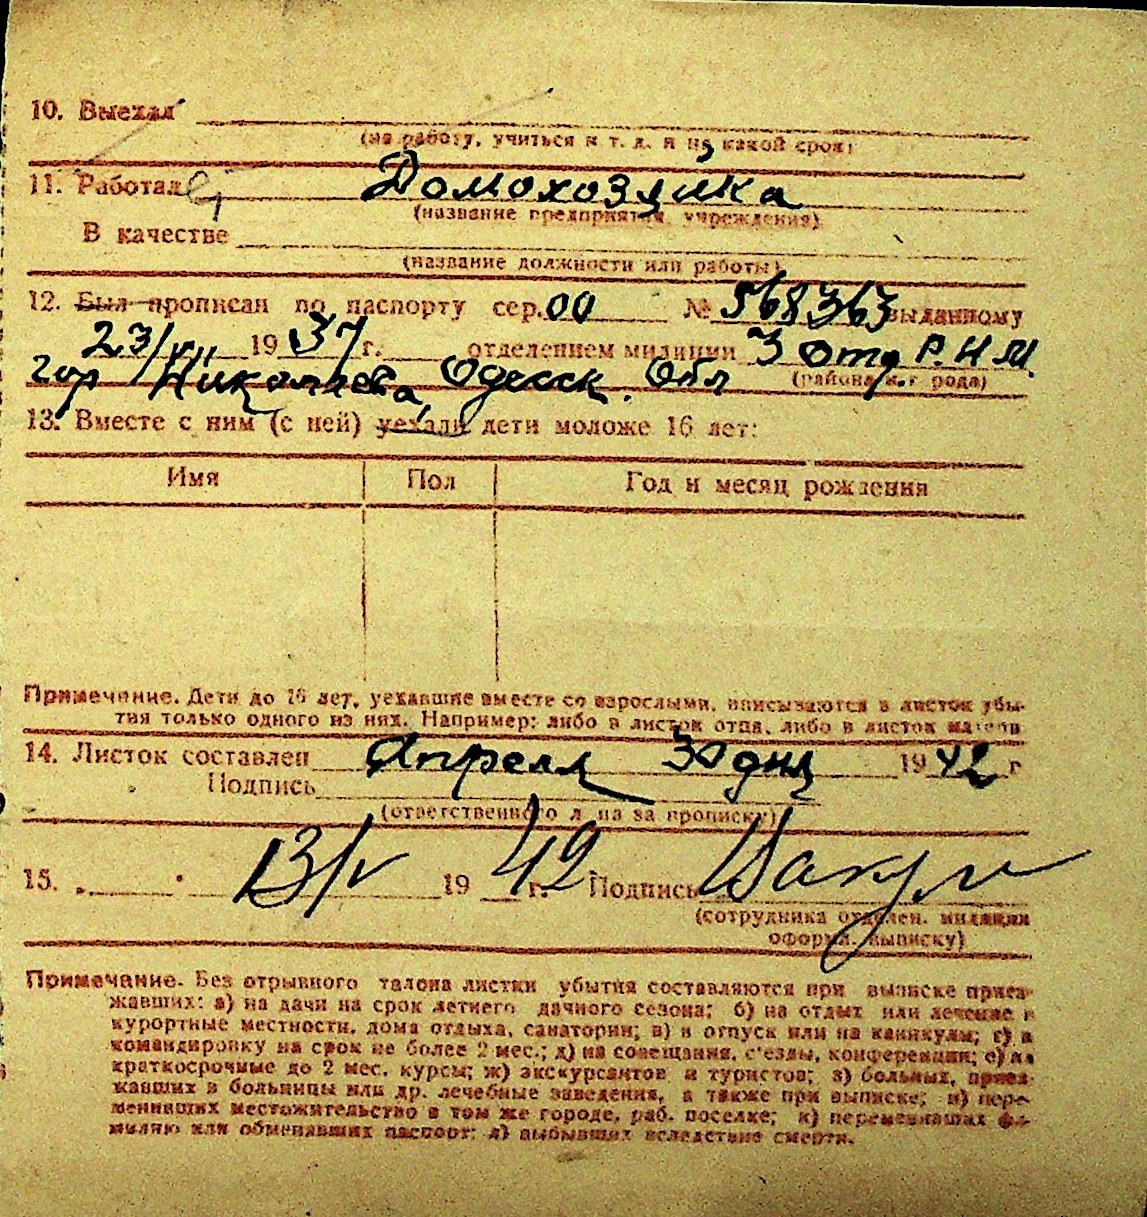 10. Выехал
(на работу, учиться и т. д. и на какой срок)
11. Работал Домохозяйка
(название предприятия, учреждения)
В качестве
(название должности или работы)
12. Был прописан по паспорту сер. 00 № 568363 выданному
23/ 1937 г. отделением милиции 3 отд Р.К.М.
гор Николаева, Одесск. Обл (района и. г рода)
13. Вместе с ним (с ней) уехали дети моложе 16 лет:
Имя Пол Год и месяц рождения
Примечание. Дети до 16 лет, уехавшие вместе со взрослыми, вписываются в листок убы-
тия только одного из них. Например: либо в листок отца, либо в листок матери
14. Листок составлен Апреля 30 дня 1942 г
Подпись
(ответственного лица за прописку)
15. 13/V 1942 г. Подпись
(сотрудника отделен. милиции
оформ. выписку)
Примечание. Без отрывного талона листки убытия составляются при выписке приез-
жавших: а) на дачи на срок летнего дачного сезона; б) на отдых или лечение в
курортные местности, дома отдыха, санатории; в) в отпуск или на каникулы; г) в
командировку на срок не более 2 мес.; д) на совещания, с'езды, конференции; е) на
краткосрочные до 2 мес. курсы; ж) экскурсантов и туристов; з) больных, приез-
жавших в больницы или др. лечебные заведения, а также при выписке; и) пере-
менивших местожительство в том же городе, раб. поселке; к) переменивших фа-
милию или обменявших паспорт; л) выбывших вследствие смерти.